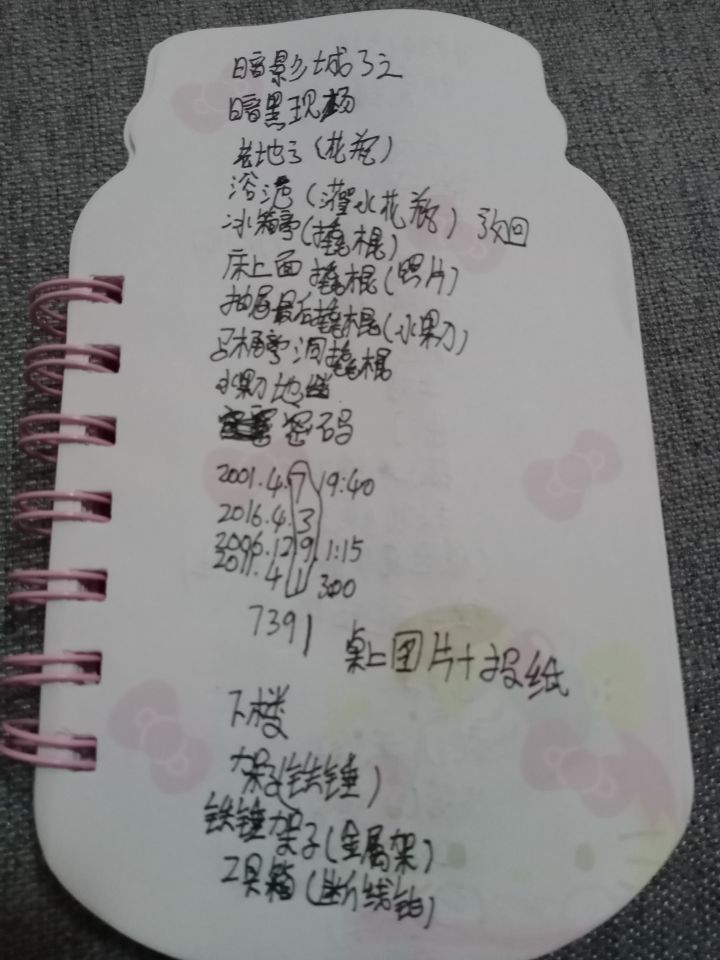 暗影城3之
暗黑现场
老地方(花瓶)
浴池(灌水花瓶)放回
冰箱旁(撬棍)
床上面撬棍(照片)
抽屉最后撬棍(水果刀)
马桶旁洞撬棍
水果刀地
密码
2001.4.7 19:40
2016.4.3
2006.12.9. 1:15
2011.4 1 300
7391
桌上图片+报纸
下楼
架子(铁锤)
铁锤架子(金属架)
工具箱(断线钳)